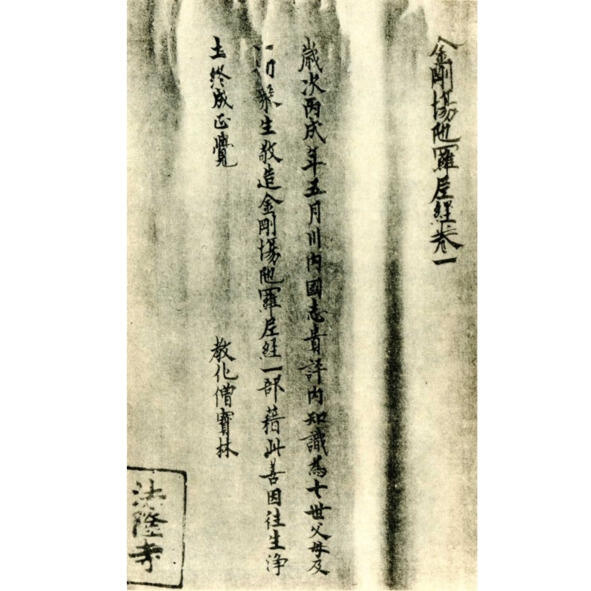 金剛場陁羅尼經卷一
歳次丙戌年五月川内國志貴評内知識爲七世父母及
一切衆生敬造金剛場陁羅尼經一部藉此善因往生浄
土終成正覺
教化僧寶林
法隆寺